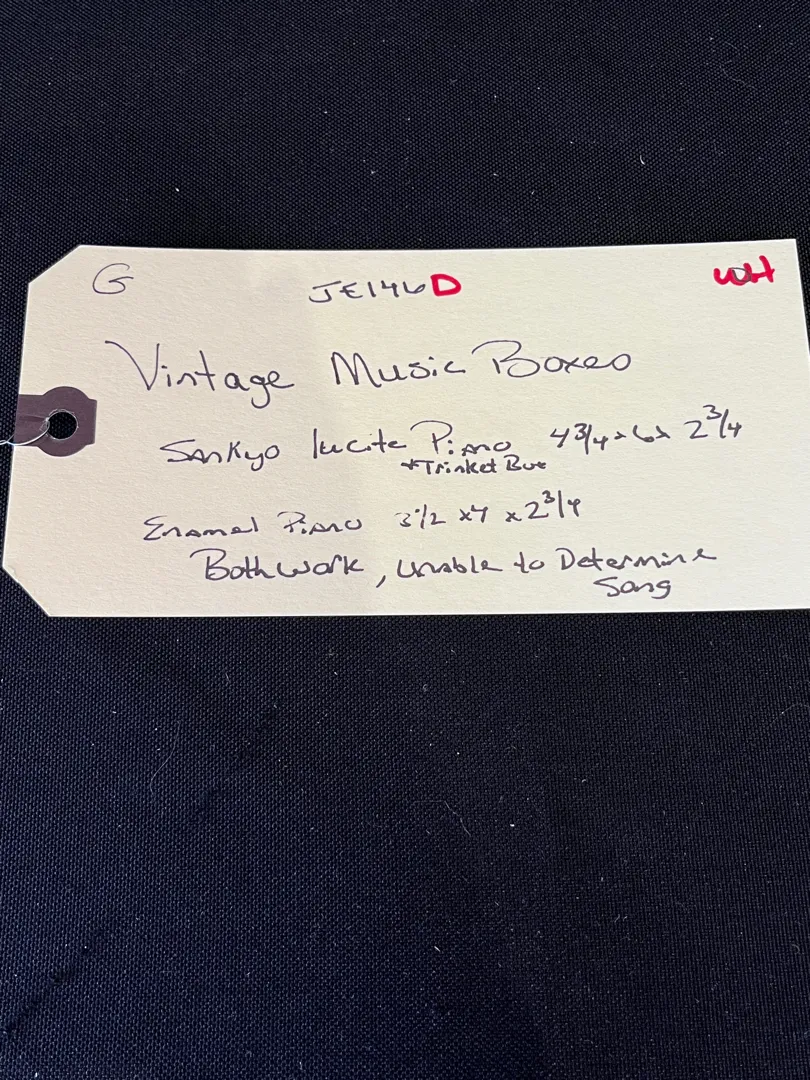 G JE146D WH
Vintage Music Boxes
Sankyo lucite Piano 4 3/4 x 6 x 2 3/4
+Trinket Box
Enamel Piano 3 1/2 x 4 x 2 3/4
Both work, unable to Determine
Song